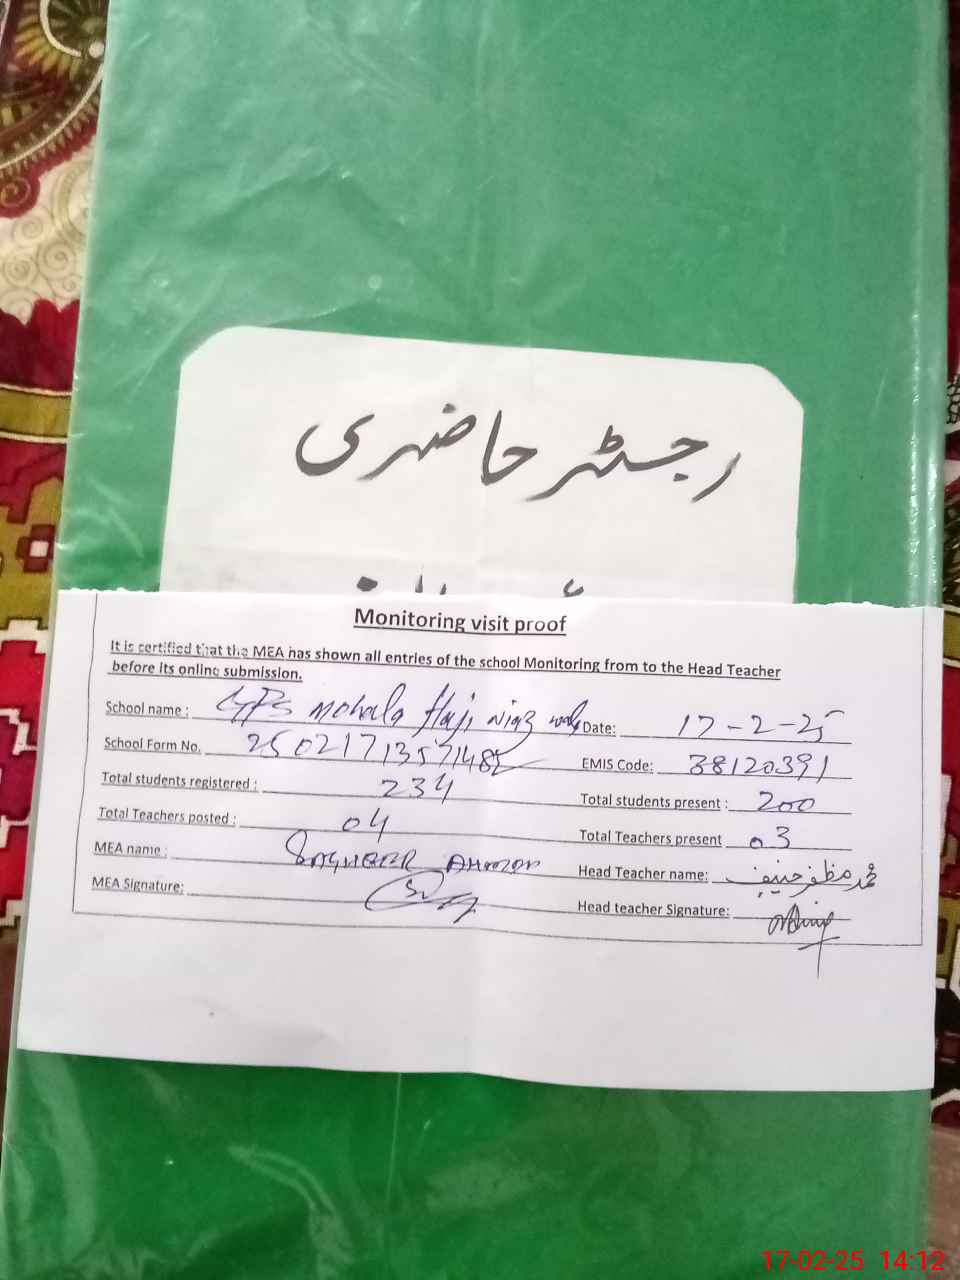 رجسٹر حاضری
Monitoring visit proof
It is certified that the MEA has shown all entries of the school Monitoring from to the Head Teacher
before its online submission.
School name : GPS Mohala Haji Niaz Wala Date: 17-2-25
School Form No. EMIS Code: 38120391
Total students registered : 234 Total students present : 200
Total Teachers posted : 04 Total Teachers present 03
MEA name : SAGHEER AHMAD Head Teacher name: محمد مظفر حنیف
MEA Signature: Head teacher Signature:
17-02-25 14:12